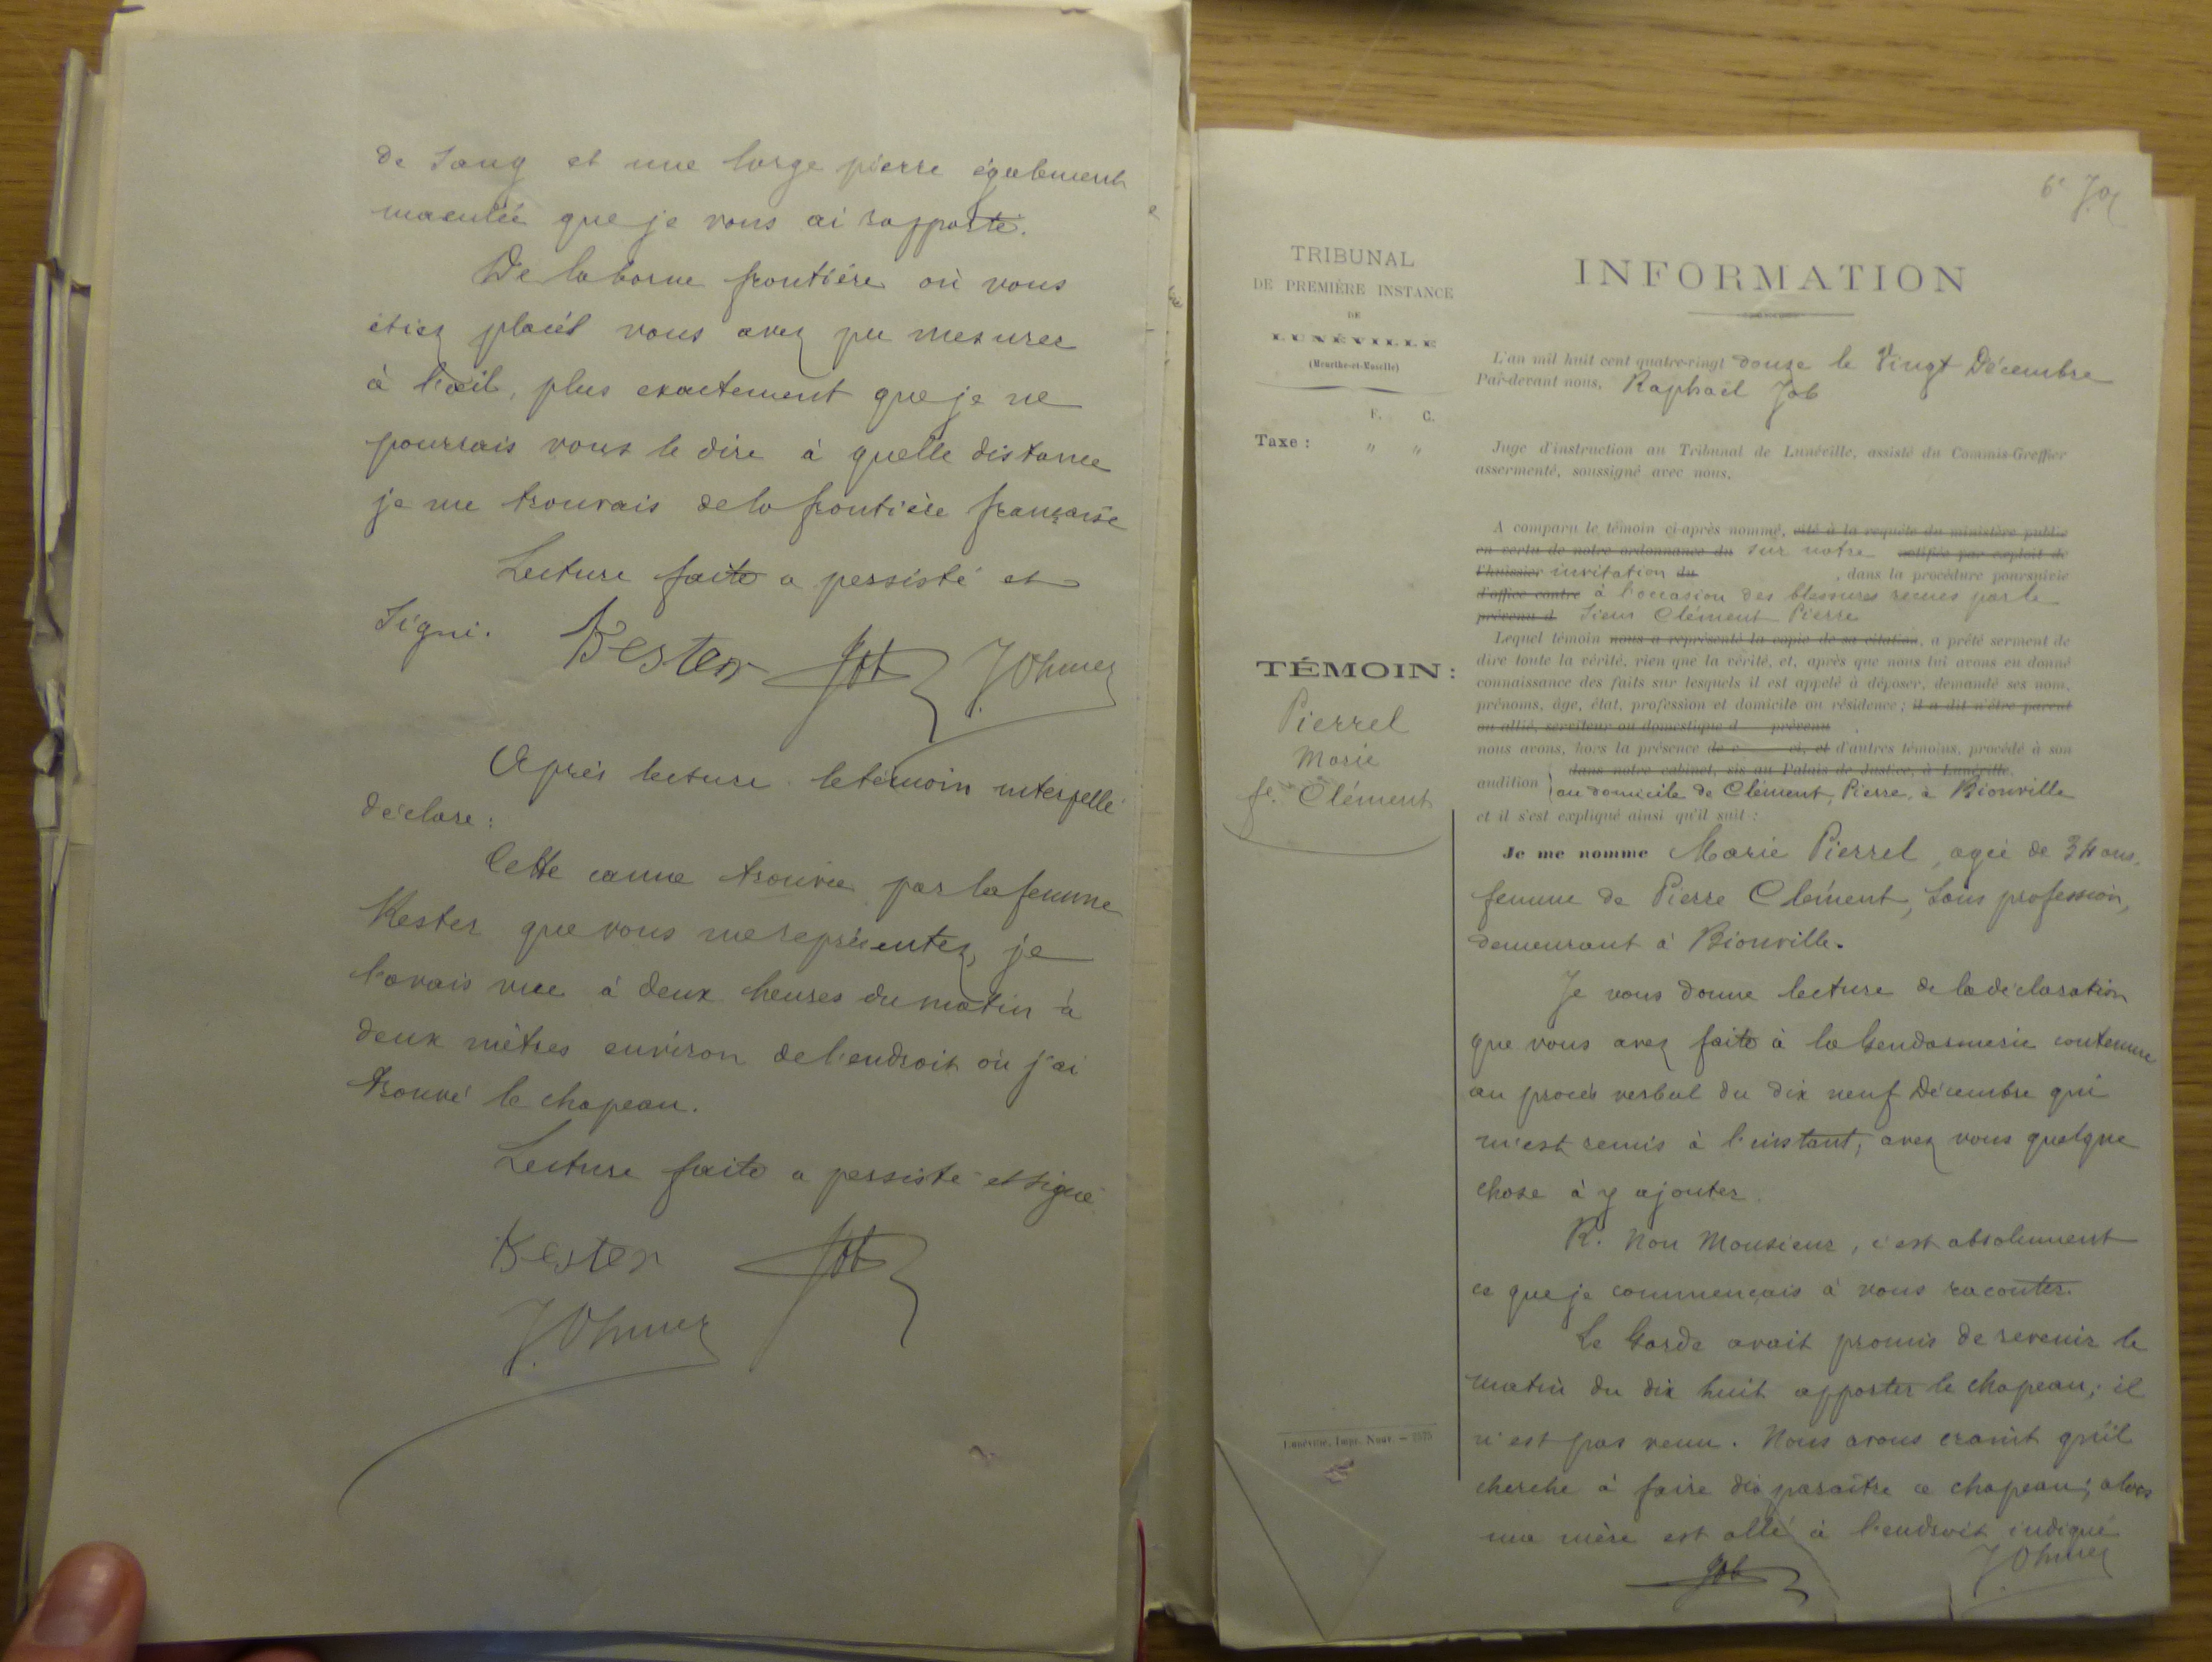 de sang et une large pierre également
maculée que je vous ai rapporté.
De la borne frontière où vous
étiez placés vous avez pu mesurer
à l'œil, plus exactement que je ne
pourrais vous le dire à quelle distance
je me trouvais de la frontière française
Lecture faite a persisté et
signé. Kester Job J. Ohmer
Après lecture le témoin interpellé
déclare :
Cette canne trouvée par la femme
Kester que vous me représentez, je
l'avais vue à deux heures du matin à
deux mètres environ de l'endroit où j'ai
trouvé le chapeau.
Lecture faite a persisté et signé
Kester Job
J. Ohmer
6e
TRIBUNAL
DE PREMIÈRE INSTANCE
DE
LUNÉVILLE
(Meurthe-et-Moselle)
F. C.
Taxe : " "
TÉMOIN :
Pierrel
Marie
fe. Clément
Lunéville, Impr. Nouv. —
INFORMATION
L'an mil huit cent quatre-vingt douze le vingt Décembre
Par-devant nous, Raphaël Job
Juge d'instruction au Tribunal de Lunéville, assisté du Commis-Greffier
assermenté, soussigné avec nous.
A comparu le témoin ci-après nommé, cité à la requête du ministère public
en vertu de notre ordonnance du sur notre notifiée par exploit de
l'huissier invitation du , dans la procédure poursuivie
d'office contre à l'occasion des blessures reçues par le
prévenu d sieur Clément Pierre
Lequel témoin nous a représenté la copie de sa citation, a prêté serment de
dire toute la vérité, rien que la vérité, et, après que nous lui avons eu donné
connaissance des faits sur lesquels il est appelé à déposer, demandé ses nom,
prénoms, âge, état, profession et domicile ou résidence ; il a dit n'être parent
ou allié, serviteur ou domestique d prévenu
nous avons, hors la présence de c ci, et d'autres témoins, procédé à son
dans notre cabinet, sis au Palais de Justice, à Lunéville,
audition } au domicile de Clément, Pierre, à Bionville
et il s'est expliqué ainsi qu'il suit :
Je me nomme Marie Pierrel, agée de 34 ans,
femme de Pierre Clément, sans profession,
demeurant à Bionville.
Je vous donne lecture de la déclaration
que vous avez faite à la Gendarmerie contenue
au procès verbal du dix neuf Décembre qui
m'est remis à l'instant, avez vous quelque
chose à y ajouter.
R. Non Monsieur, c'est absolument
ce que je commençais à vous raconter.
Le Garde avait promis de revenir le
matin du dix huit apporter le chapeau ; il
n'est pas venu. Nous avons craint qu'il
cherche à faire disparaître ce chapeau ; alors
ma mère est allé à l'endroit indiqué
Job J. Ohmer